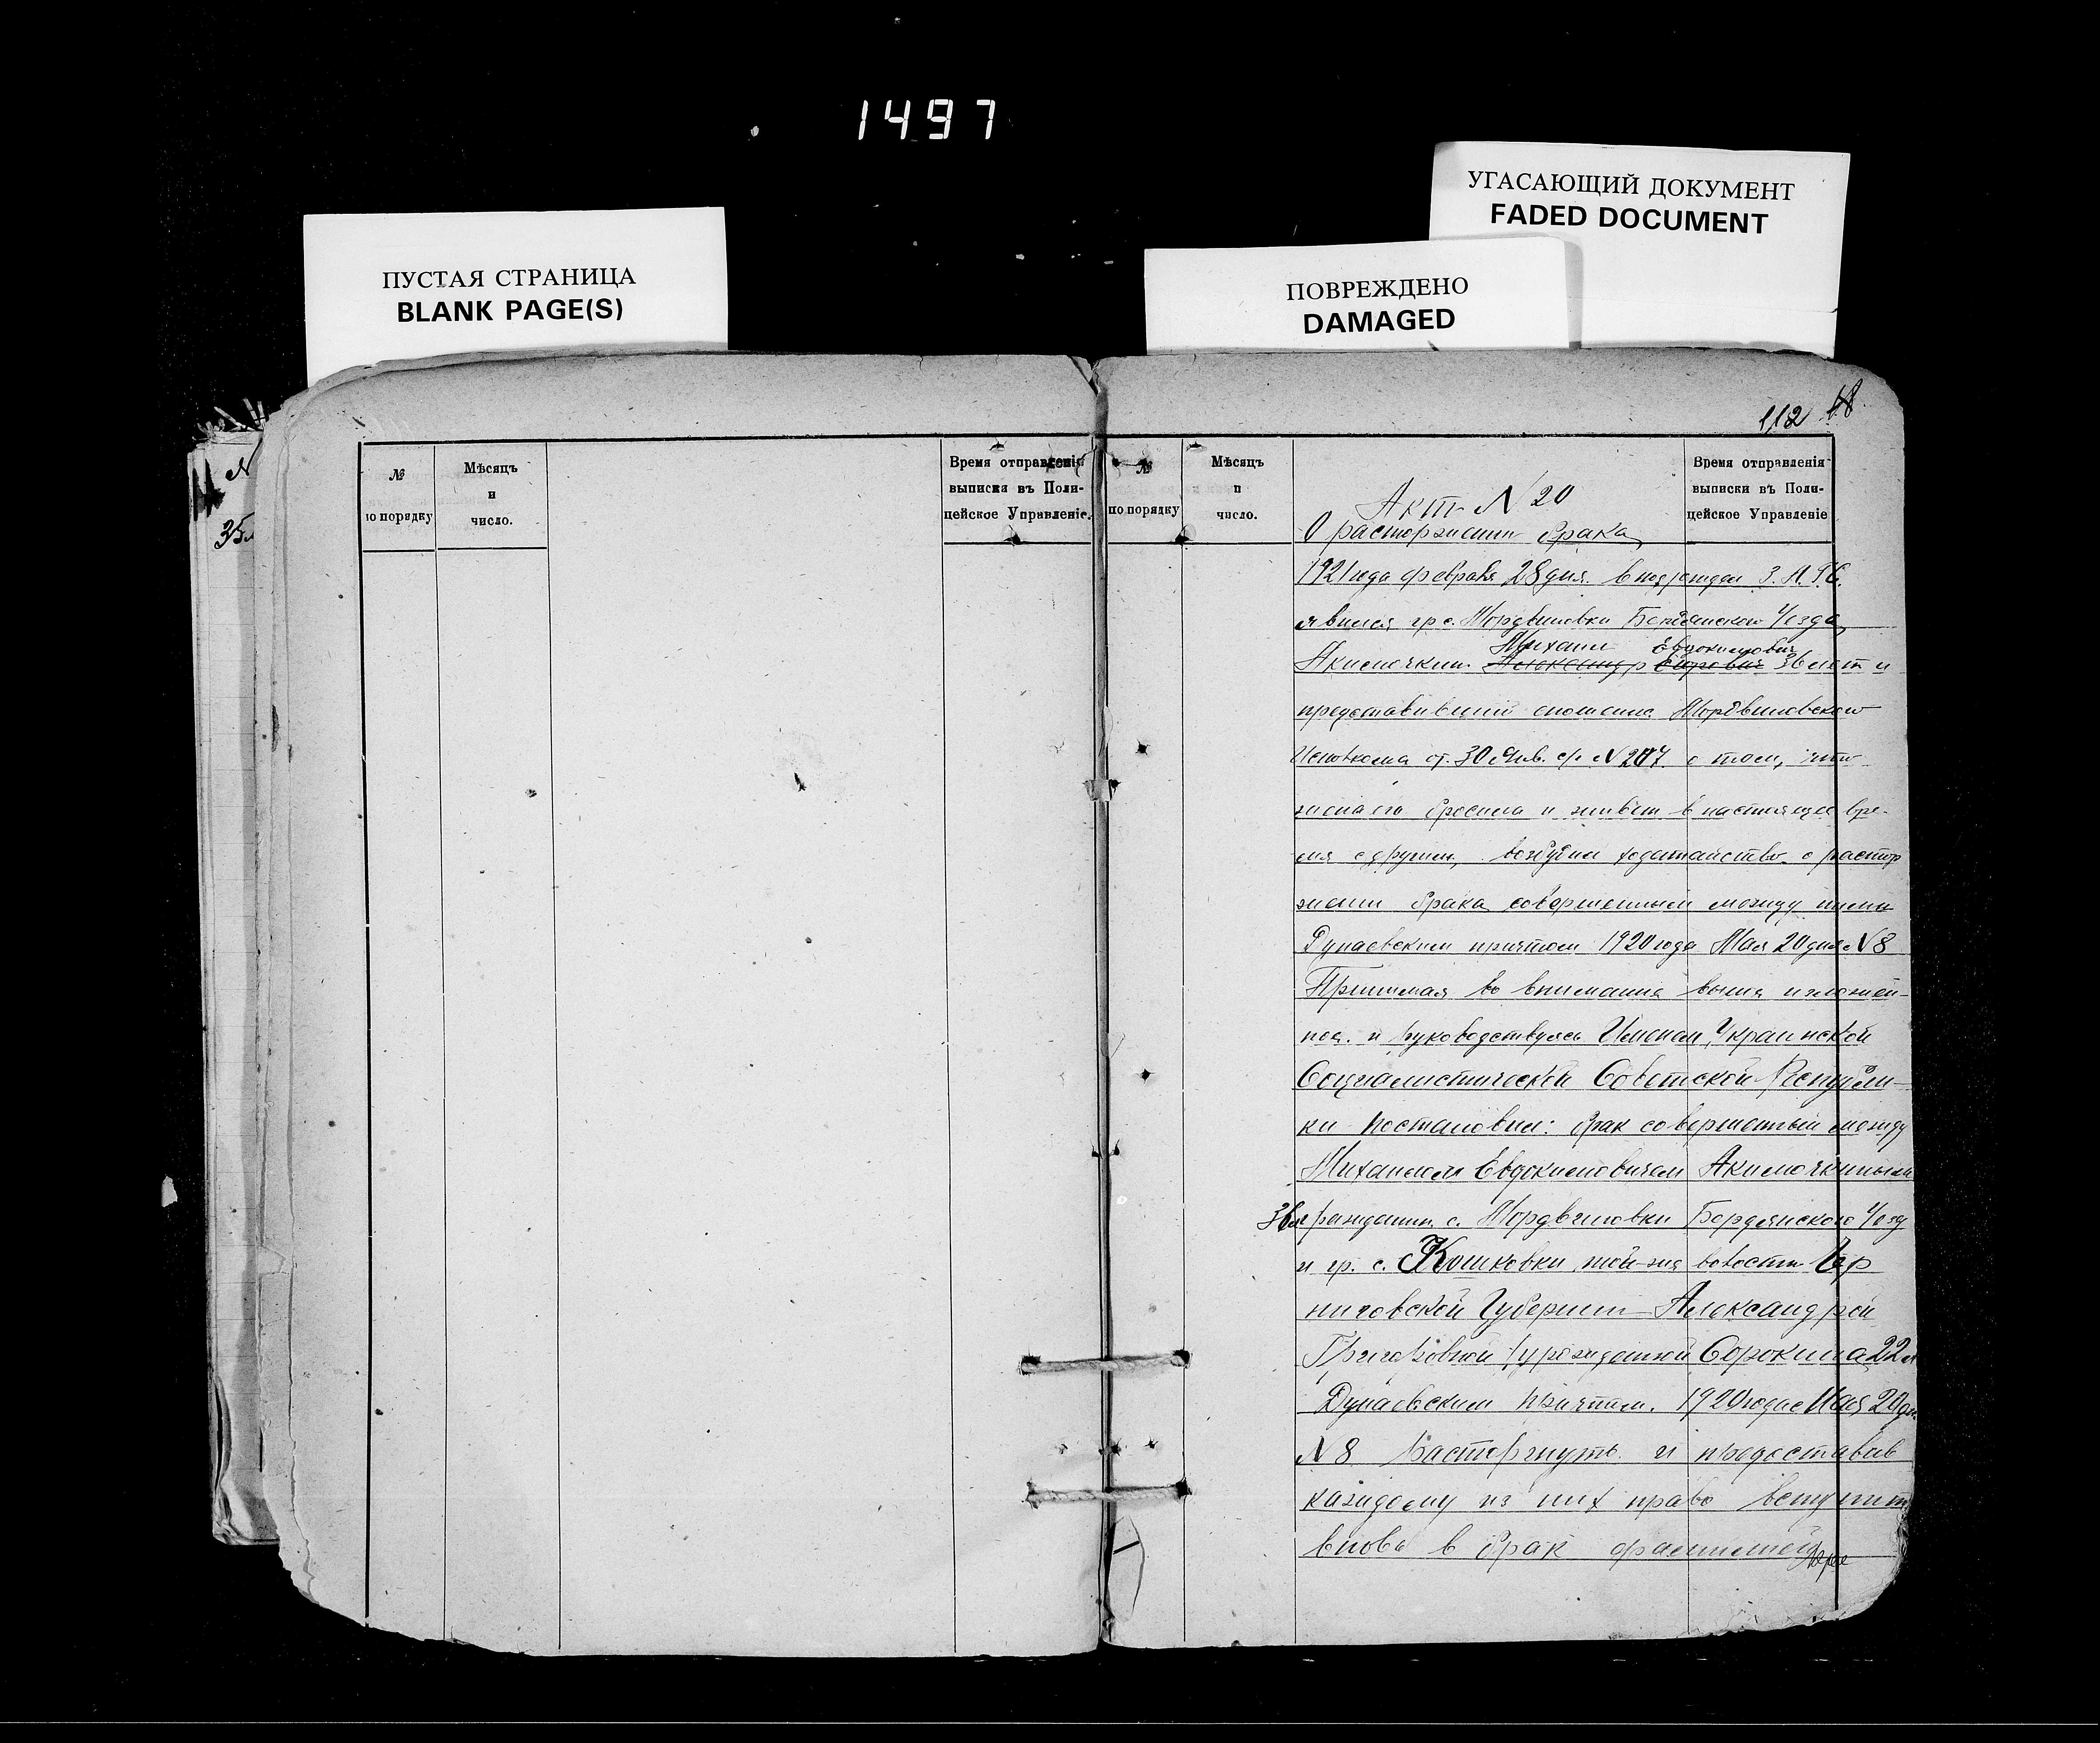 1497
УГАСАЮЩИЙ ДОКУМЕНТ
FADED DOCUMENT
ПУСТАЯ СТРАНИЦА
BLANK PAGE(S)
ПОВРЕЖДЕНО
DAMAGED
112 18
№
по порядку
Мѣсяцъ
и
число.
Время отправленія
выписки въ Поли-
цейское Управленіе.
№
по порядку
Мѣсяцъ
и
число.
Время отправленія
выписки въ Поли-
цейское Управленіе
35
Акт N 20
О расторжении брака
1921 года февраля 28 дня. в З. А. Г. С.
явился гр. с. Мордвиновки Уезда
Михаил Евдокимович
Акимочкин Александр 36 лет и
представивший отношение Мордвиновского
Исповкома от 30 Янв. с/г N 207 о том, что
жена его бросила и живет в настоящее вре-
мя с другим, возбудил ходатайство о растор
жении брака совершенным между ними
Дунаевским причтом 1920 года Мая 20 дня N 8
Принимая во внимание выше изложен-
ное и руководствуясь Именем Украинской
Социалистической Советской Республи-
ки постановил: брак совершенный между
Михаилом Евдокимовичем Акимочкиным
36 л гражданин с. Мордвиновки Бердянского Уезд
и гр. с. Кошковки той-же волости Чер
ниговской Губернии Александрой
урожденной Сорокина 22 л
Дунаевским причтом 1920 года Мая 20 дн.
N 8 Расторгнуть и предоставив
каждому из них право вступить
вновь в брак фамилией